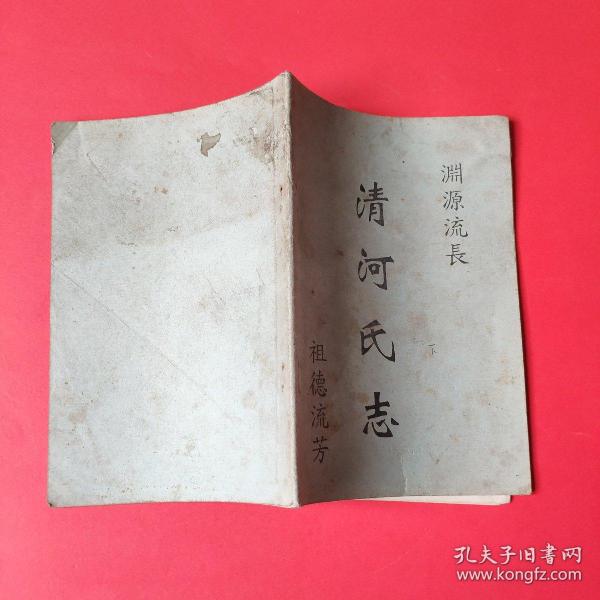 淵源流長
清河氏志
下
祖德流芳
孔夫子旧書网
www.kongfz.com